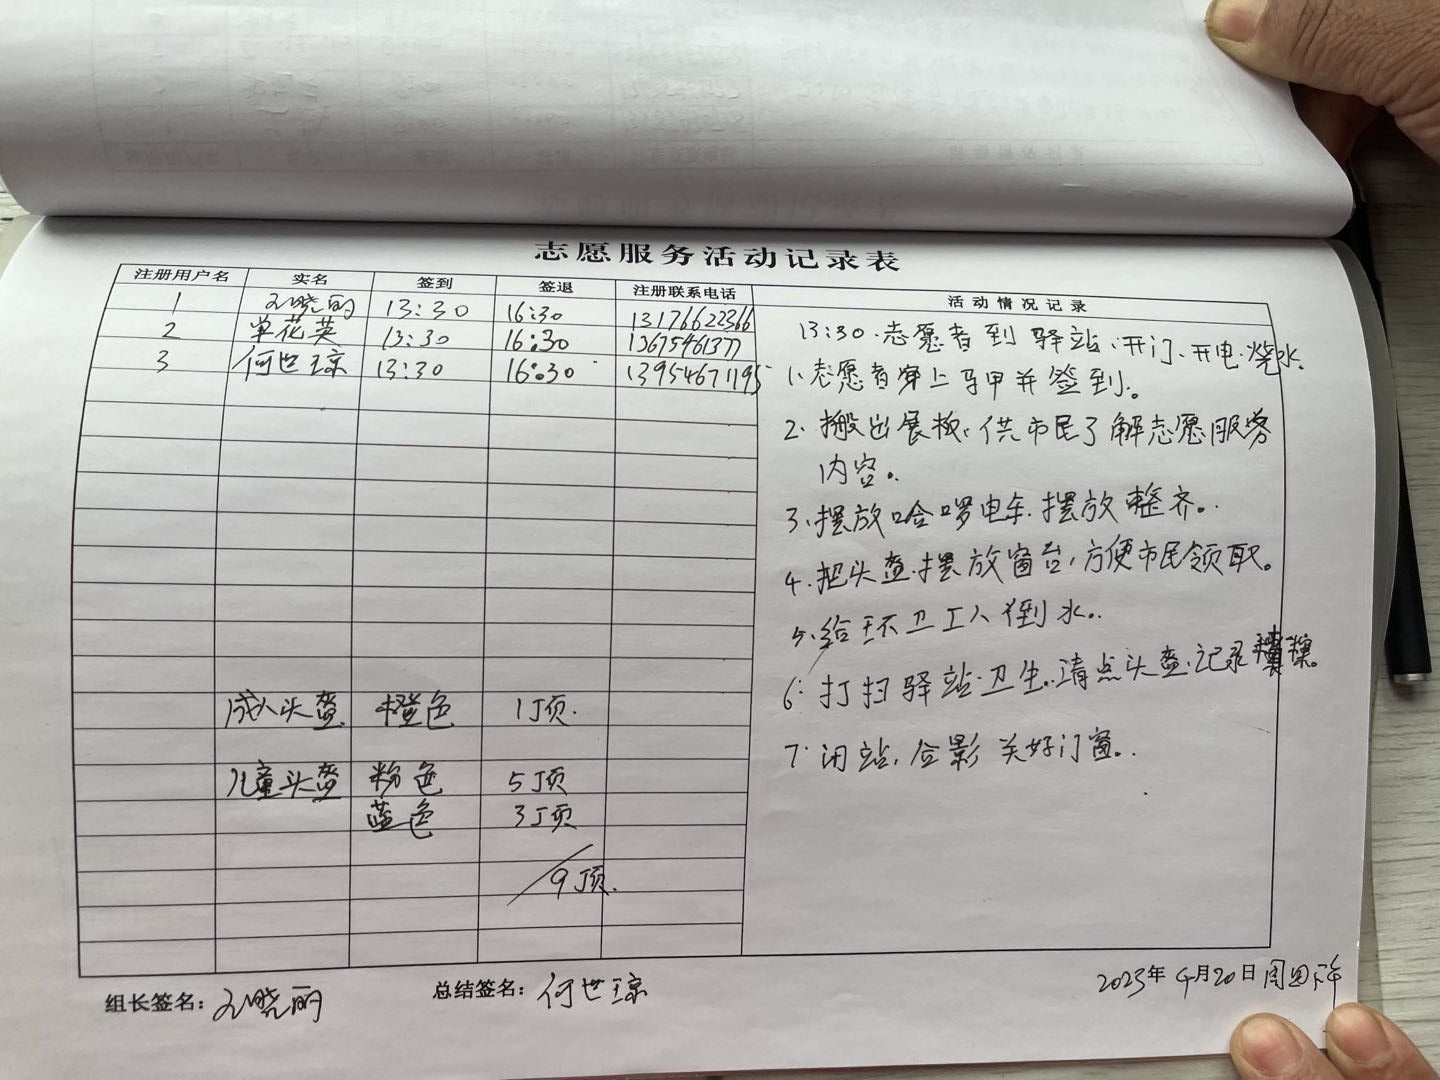 志愿服务活动记录表
注册用户名 实名 签到 签退 注册联系电话 活动情况记录
1 孙晓丽 13:30 16:30 13176622366
2 单花英 13:30 16:30 13675461377
3 何世琼 13:30 16:30 13954671195
13:30.志愿者到驿站、开门、开电.烧水.
1、志愿者穿上马甲并签到。
2、搬出展板,供市民了解志愿服务
内容。
3、摆放哈啰电车.摆放整齐。
4.把头盔.摆放窗台,方便市民领取。
5、给环卫工人倒水。
6:打扫驿站卫生.清点头盔.记录
7.闭站,合影 关好门窗。
成人头盔 橙色 1顶.
儿童头盔 粉色 5顶
蓝色 3顶
9顶.
组长签名: 孙晓丽 总结签名: 何世琼 2023年4月20日周四下午